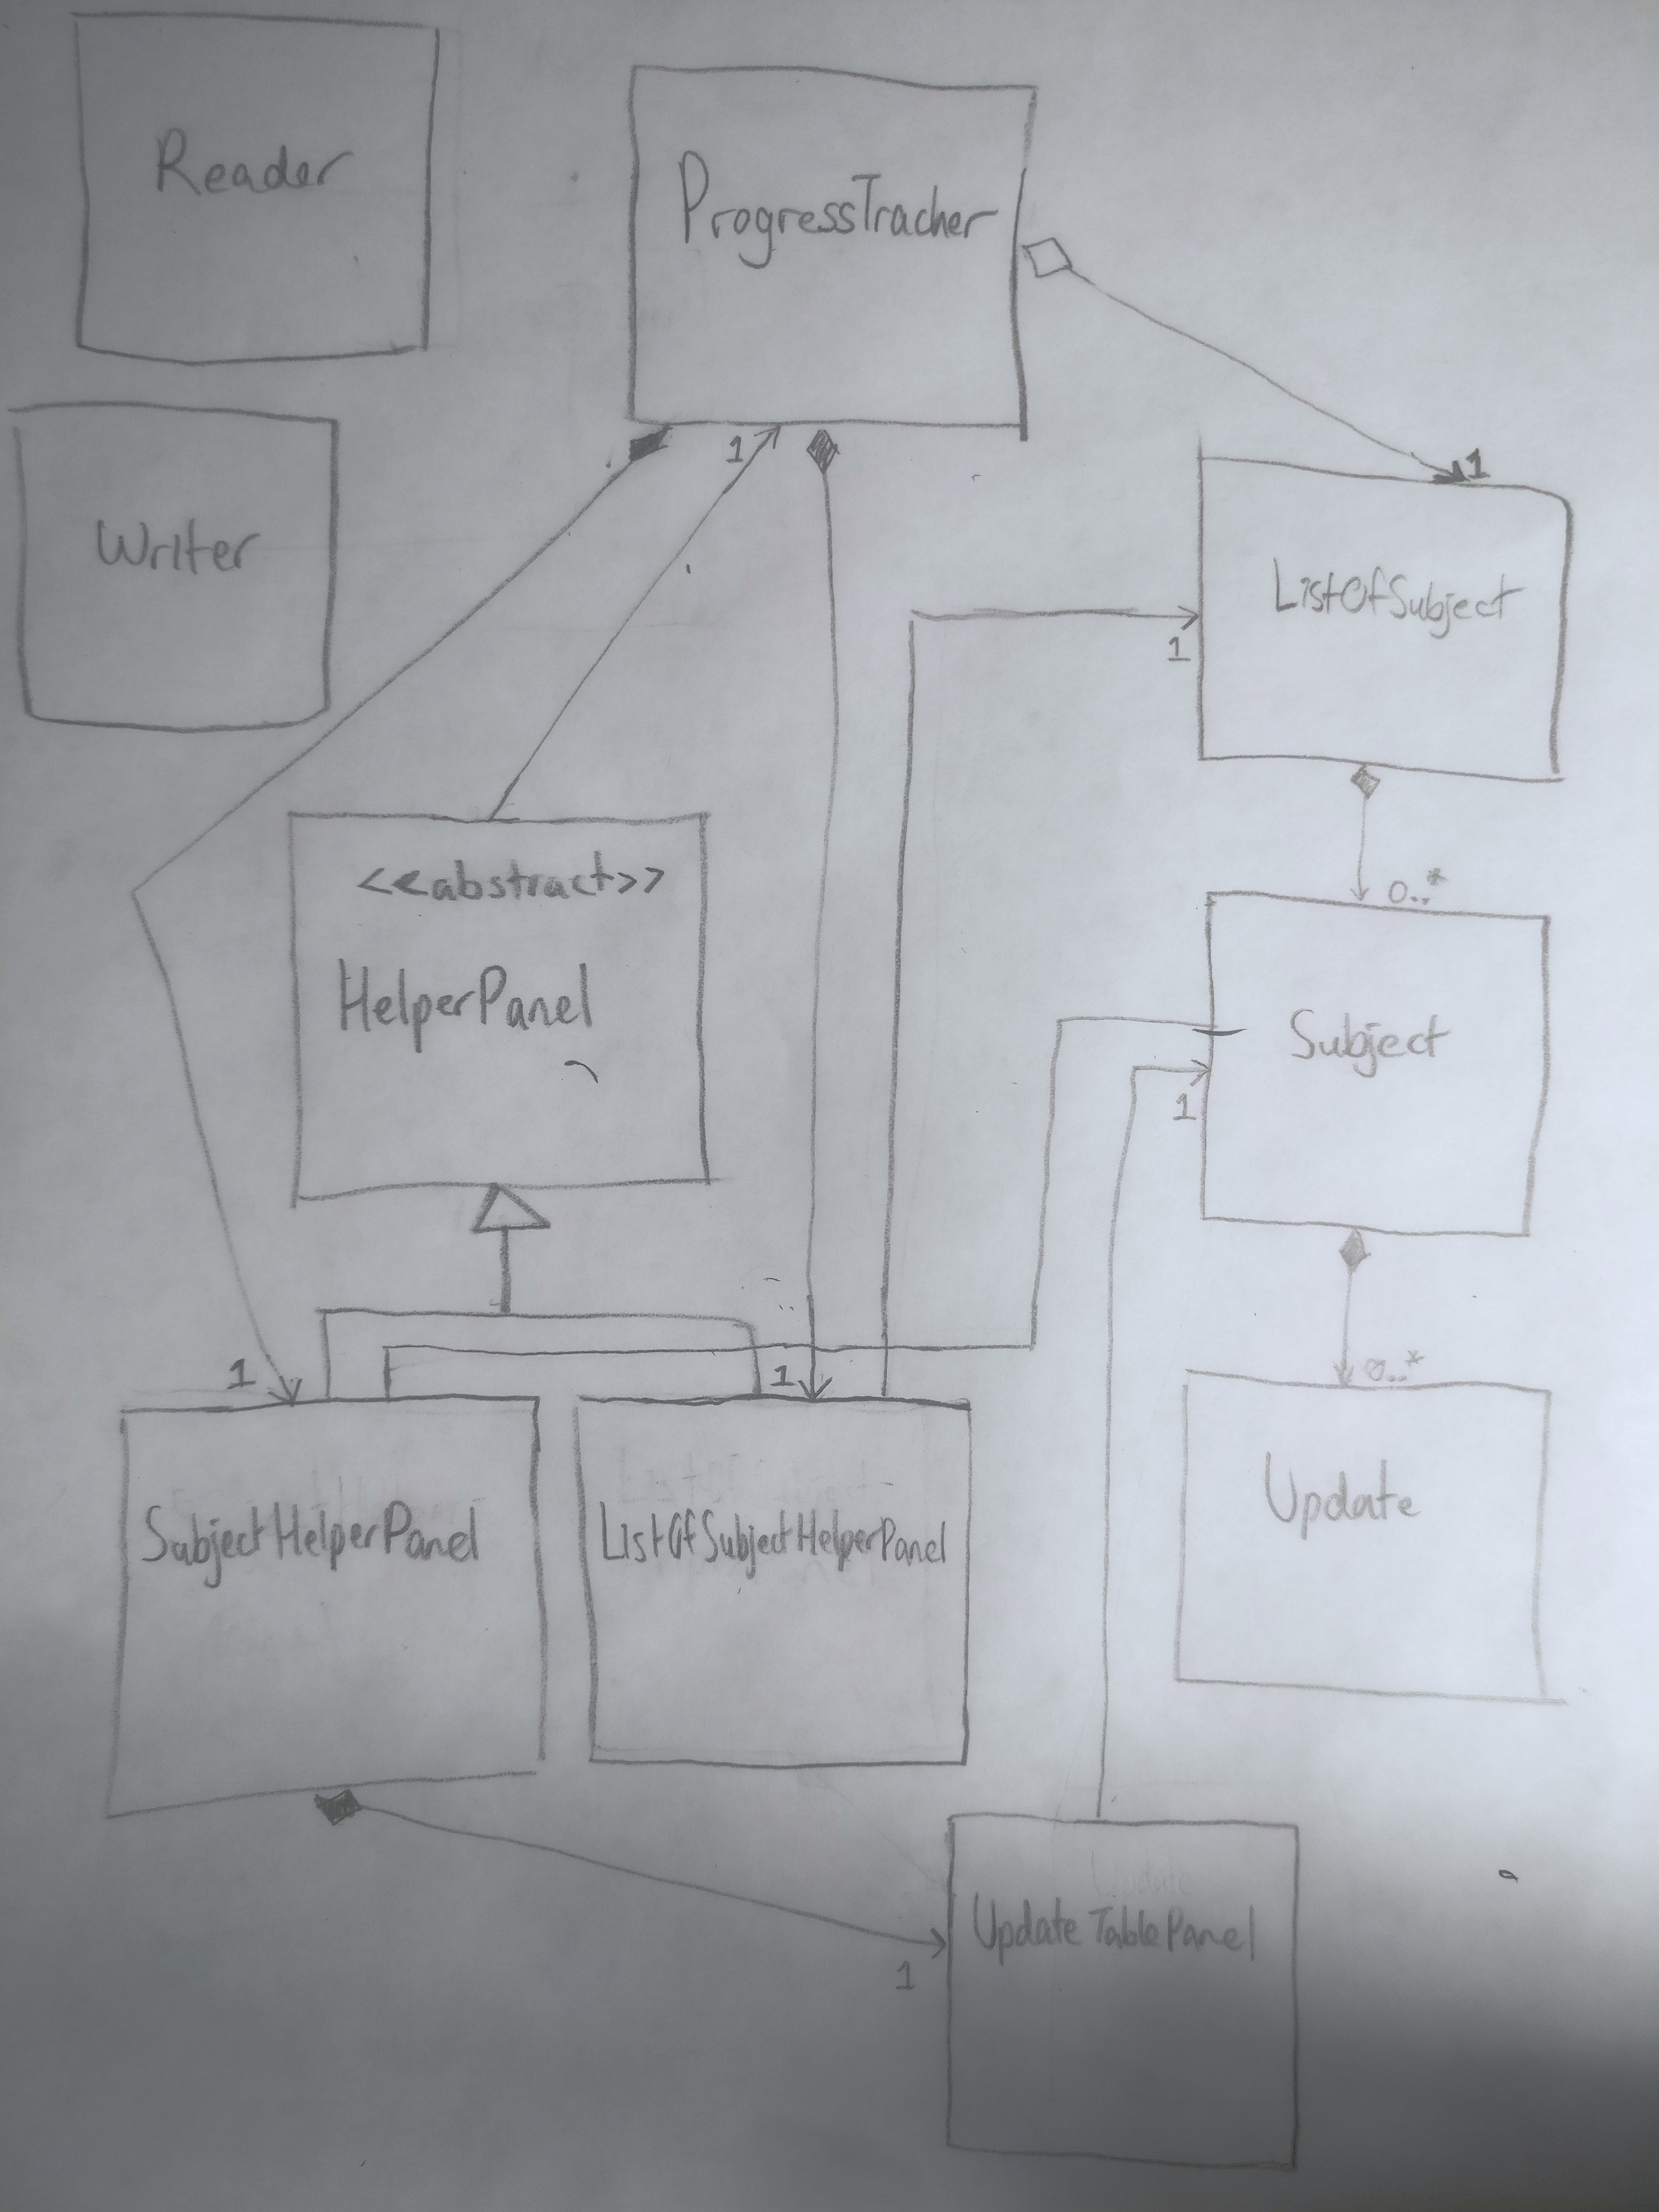 Reader
ProgressTracher
1
1
Writer
ListOfSubject
1
<<abstract>>
0..*
HelperPanel
Subject
1
1
1
0..*
Update
SubjectHelperPanel
ListOfSubjectHelperPanel
Update
UpdateTablePanel
1